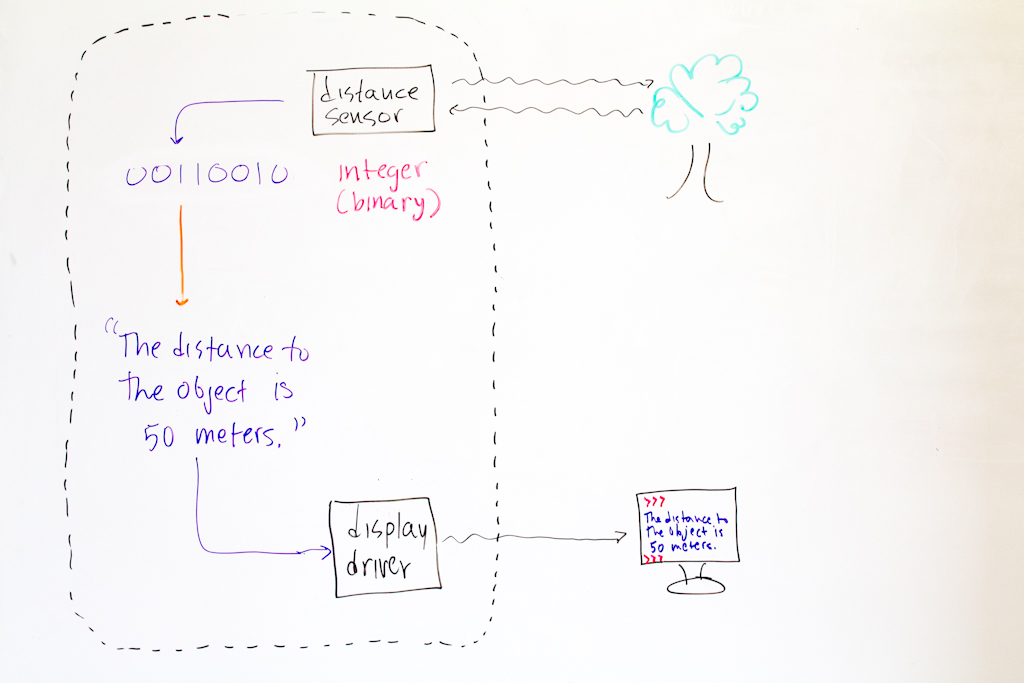 distance
sensor
00110010
integer
(binary)
"The distance to
the object is
50 meters."
display
driver
>>>
The distance to
the object is
50 meters.
>>>